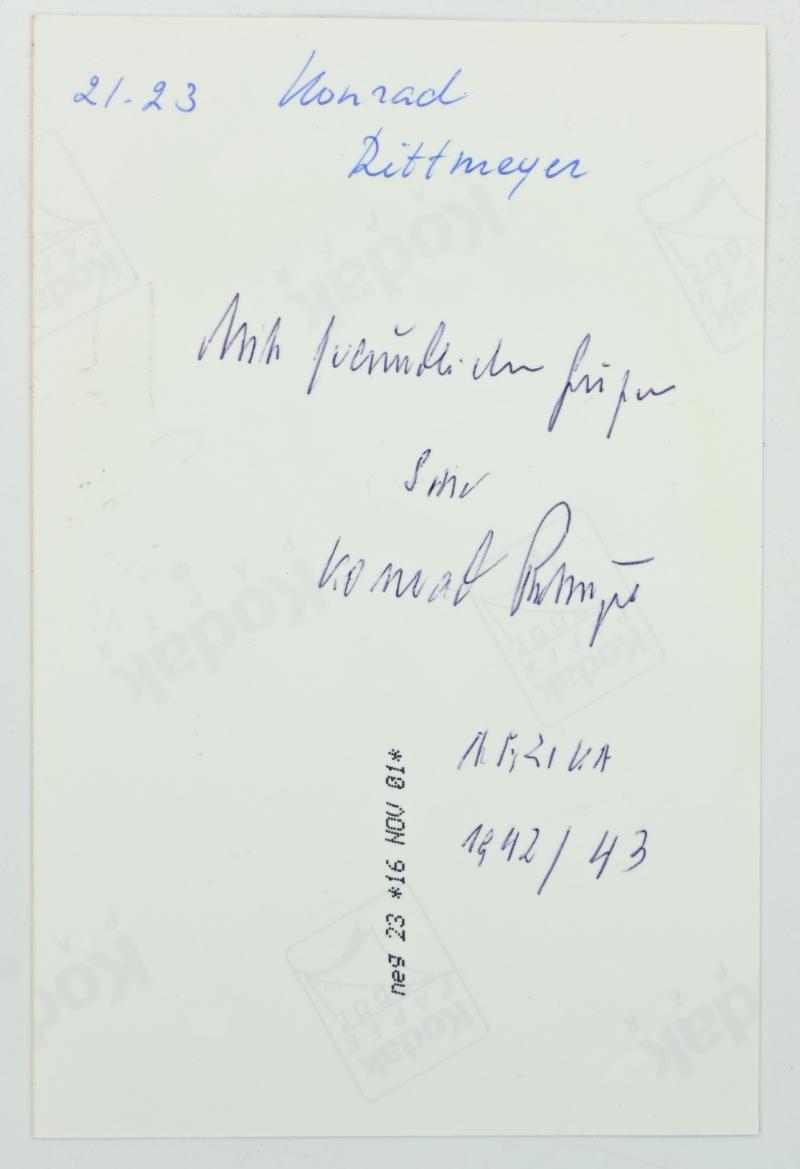 21-23 Konrad
Rittmeyer
Mit freundlichen Grüßen
Konrad
AFRIKA
1942/43
neg 23 *16 NOV 01*
Kodak
PAPER
Kodak
Kodak
PAPER
Kodak
Kodak
Kodak
Kodak
PAPER
Kodak